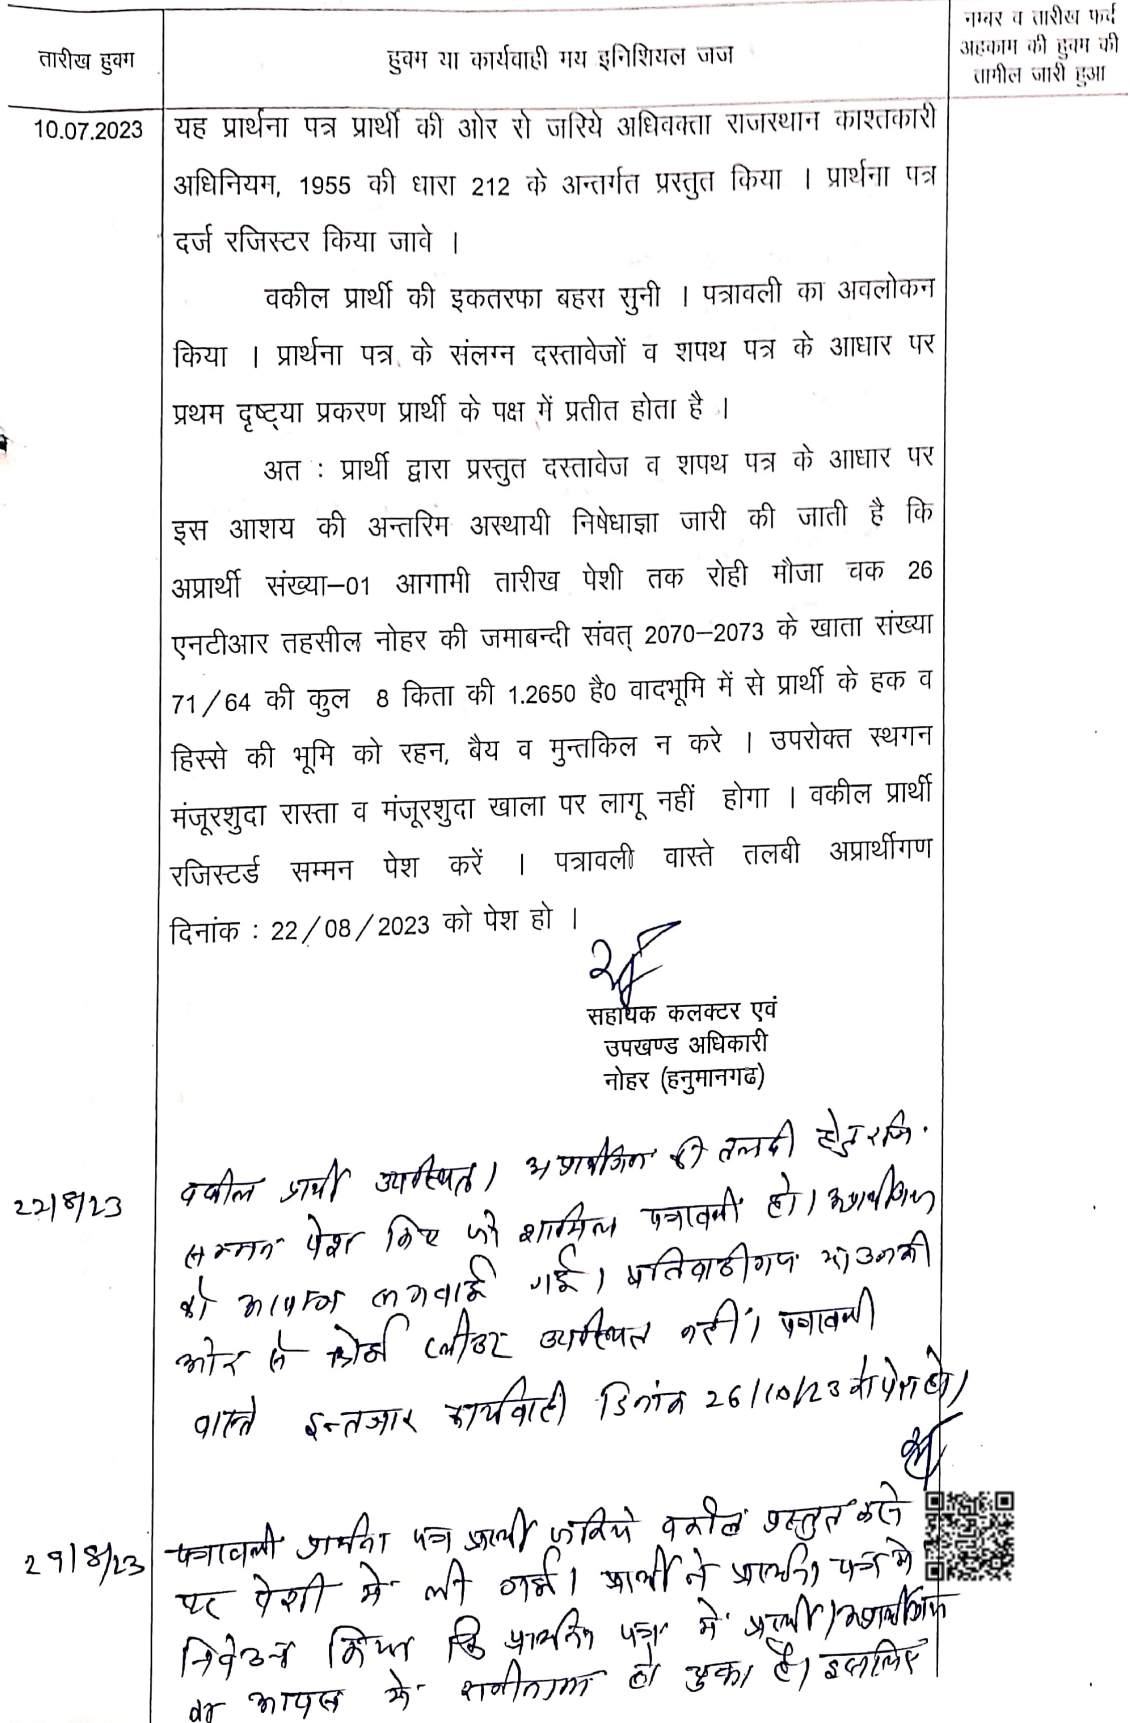 तारीख हुक्म
हुक्म या कार्यवाही मय इनिशियल जज
नम्बर व तारीख फर्द
अहकाम की हुक्म की
तामील जारी हुआ
10.07.2023
यह प्रार्थना पत्र प्रार्थी की ओर से जरिये अधिवक्ता राजस्थान काश्तकारी
अधिनियम, 1955 की धारा 212 के अन्तर्गत प्रस्तुत किया । प्रार्थना पत्र
दर्ज रजिस्टर किया जावे ।
वकील प्रार्थी की इकतरफा बहस सुनी । पत्रावली का अवलोकन
किया । प्रार्थना पत्र के संलग्न दस्तावेजों व शपथ पत्र के आधार पर
प्रथम दृष्ट्या प्रकरण प्रार्थी के पक्ष में प्रतीत होता है ।
अत : प्रार्थी द्वारा प्रस्तुत दस्तावेज व शपथ पत्र के आधार पर
इस आशय की अन्तरिम अस्थायी निषेधाज्ञा जारी की जाती है कि
अप्रार्थी संख्या–01 आगामी तारीख पेशी तक रोही मौजा चक 26
एनटीआर तहसील नोहर की जमाबन्दी संवत् 2070–2073 के खाता संख्या
71/64 की कुल 8 किता की 1.2650 है0 वादभूमि में से प्रार्थी के हक व
हिस्से की भूमि को रहन, बैय व मुन्तकिल न करे । उपरोक्त स्थगन
मंजूरशुदा रास्ता व मंजूरशुदा खाला पर लागू नहीं होगा । वकील प्रार्थी
रजिस्टर्ड सम्मन पेश करें । पत्रावली वास्ते तलबी अप्रार्थीगण
दिनांक : 22/08/2023 को पेश हो ।
सहायक कलक्टर एवं
उपखण्ड अधिकारी
नोहर (हनुमानगढ)
22/8/23
वकील प्रार्थी उपस्थित। अप्रार्थीगण की तलबी हेतु रजि.
सम्मन पेश किए जो शामिल पत्रावली हो। अप्रार्थीगण
को आवाज लगवाई गई। प्रतिवादीगण या उनकी
ओर से कोई प्लीडर उपस्थित नहीं। पत्रावली
वास्ते इन्तजार कार्यवाही दिनांक 26/10/23 को पेश हो।
29/8/23
पत्रावली प्रार्थना पत्र प्रार्थी जरिये वकील प्रस्तुत करने
पर पेशी में ली गई। प्रार्थी ने प्रार्थना पत्र में
निवेदन किया कि प्रार्थना पत्र में प्रार्थी/अप्रार्थीगण
का आपस में राजीनामा हो चुका है। इसलिए